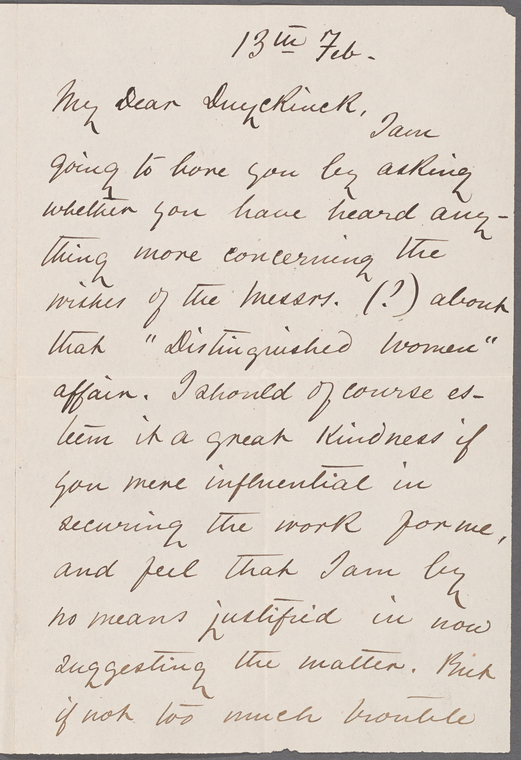 13th Feb.
My Dear Duyckinck,
I am
going to bore you by asking
whether you have heard any-
thing more concerning the
wishes of the Messrs. (?) about
that "Distinguished Women"
affair. I should of course es-
teem it a great kindness if
you were influential in
securing the work for me,
and feel that I am by
no means justified in now
suggesting the matter. But
if not too much trouble